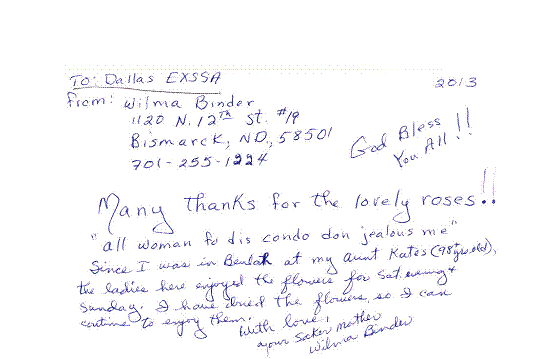 To: Dallas EXSSA
2013
From: Wilma Binder
1120 N. 12th St. #19
Bismarck, ND, 58501
701-255-1224
God Bless
You All!!
Many thanks for the lovely roses!!
"all woman fo dis condo don jealous me"
Since I was in Beulah at my aunt Kate's (98+ yrs. old),
the ladies here enjoyed the flowers for Sat. evening +
Sunday. I have dried the flowers, so I can
continue to enjoy them.
With love,
your Soker mother
Wilma Binder